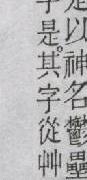 是以神名鬱壘
字是其字從艸